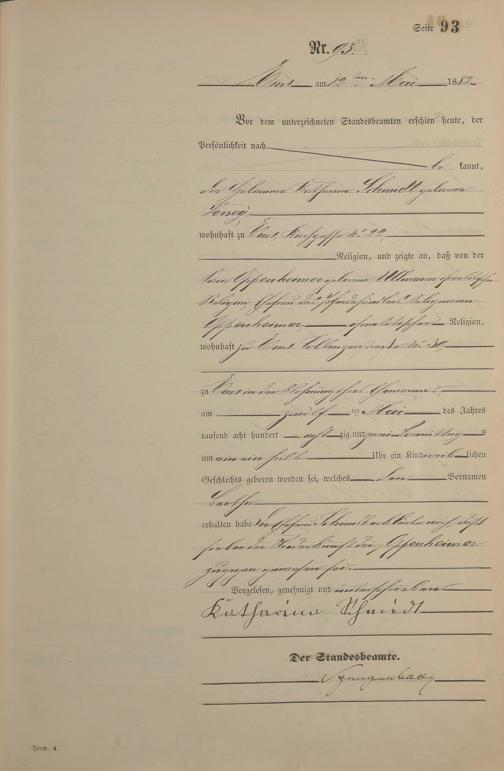 Seite 93
Nr. 93.
Ems am 12ten Mai 1882
Vor dem unterzeichneten Standesbeamten erschien heute, der
Persönlichkeit nach
be kannt,
die Hebamme Katharina Schmidt geborene
wohnhaft zu Ems, Kirchgasse No 22,
Religion, und zeigte an, daß von der
Oppenheimer geborene Ullmann israelitischer
Religion, Ehefrau des Seligmann
Oppenheimer, israelitischer Religion,
wohnhaft zu Ems, Coblenzerstraße No 30,
zu Ems in der Wohnung ihres Ehemannes,
am zwölf ten Mai des Jahres
tausend acht hundert acht zig und zwei Vormittag s
um ein ein halb Uhr ein Kind weib lichen
Geschlechts geboren worden sei, welches den Vornamen
Bertha
erhalten habe. Die Ehefrau Schmidt erklärte noch daß
sie bei der Niederkunft der Oppenheimer
zugegen gewesen sei.
Vorgelesen, genehmigt und unterschrieben
Katharina Schmidt
Der Standesbeamte.
Form. A.